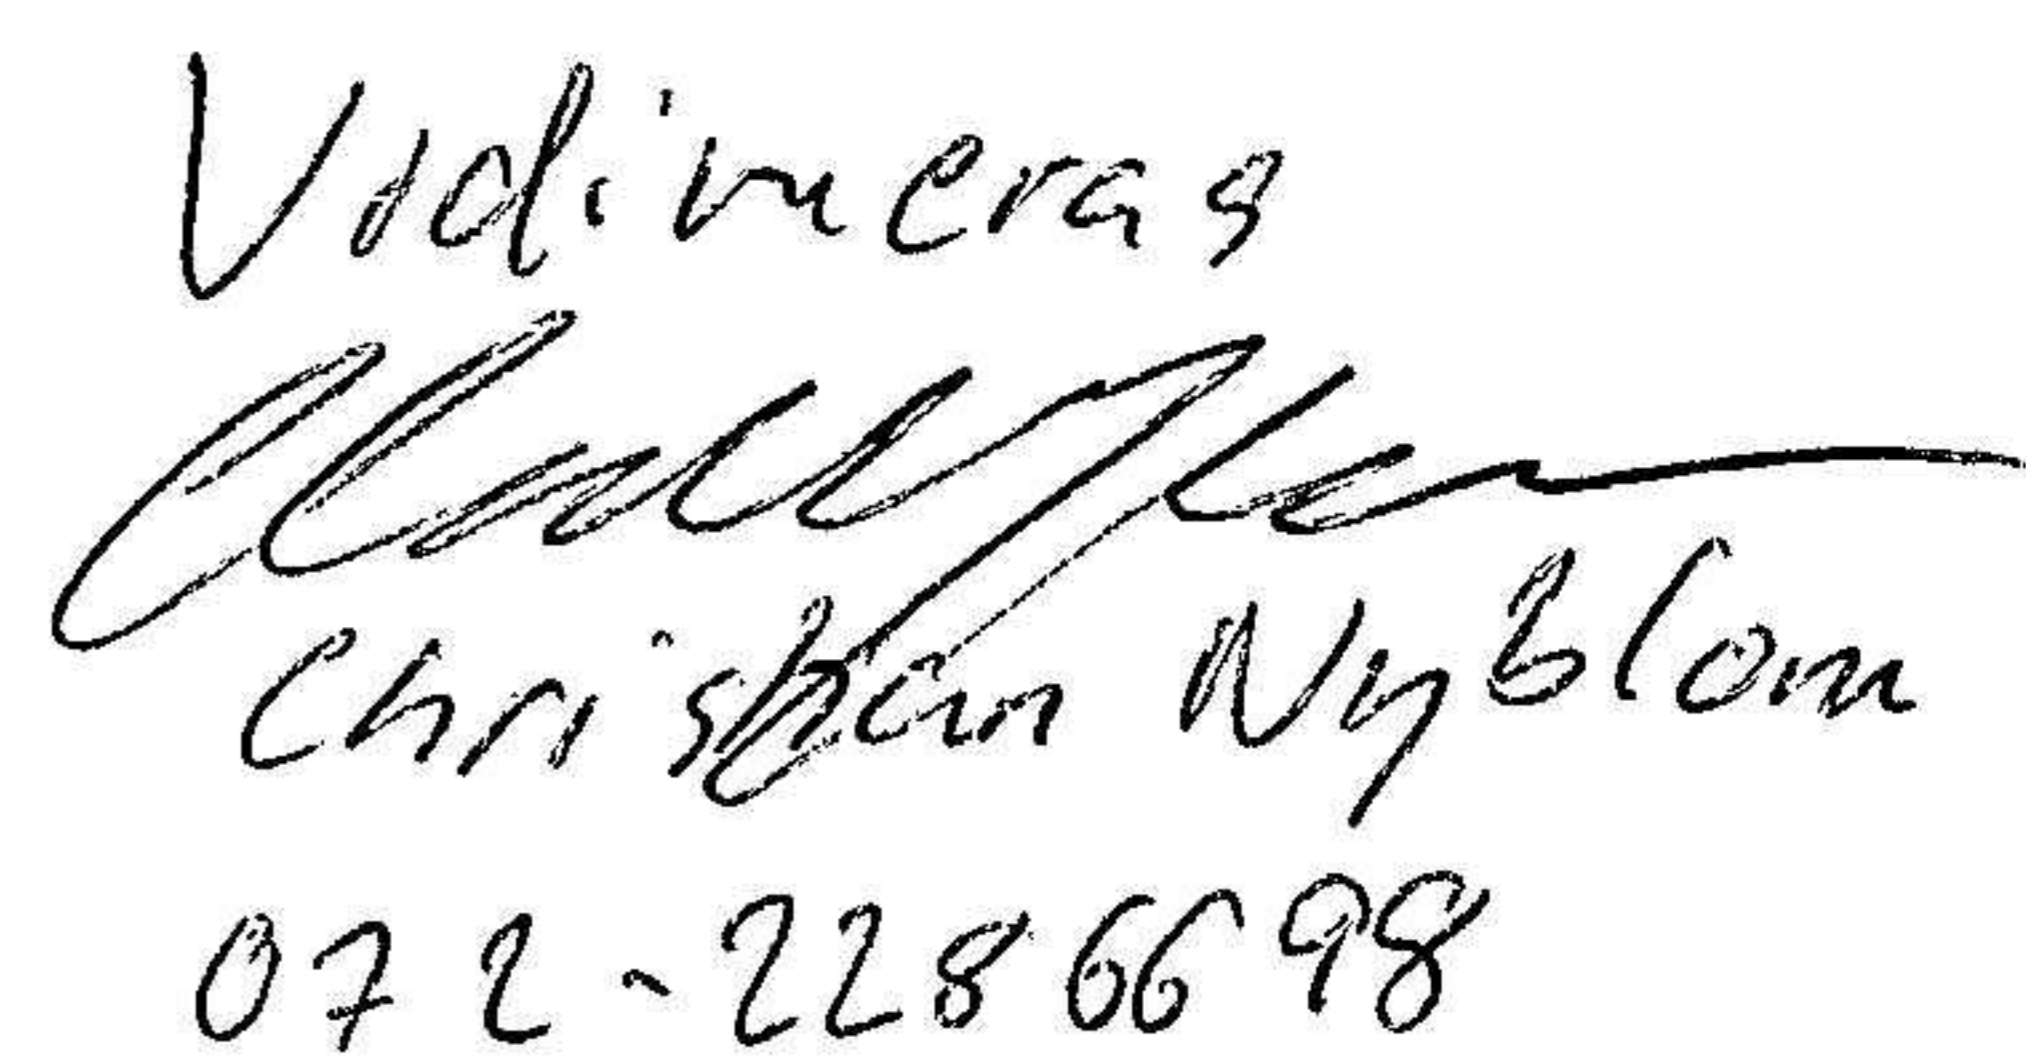 Vidimeras
Christian Nyblom
072-2286698